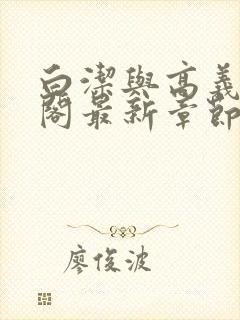 白潔與高義
閣最新章節
廖俊波